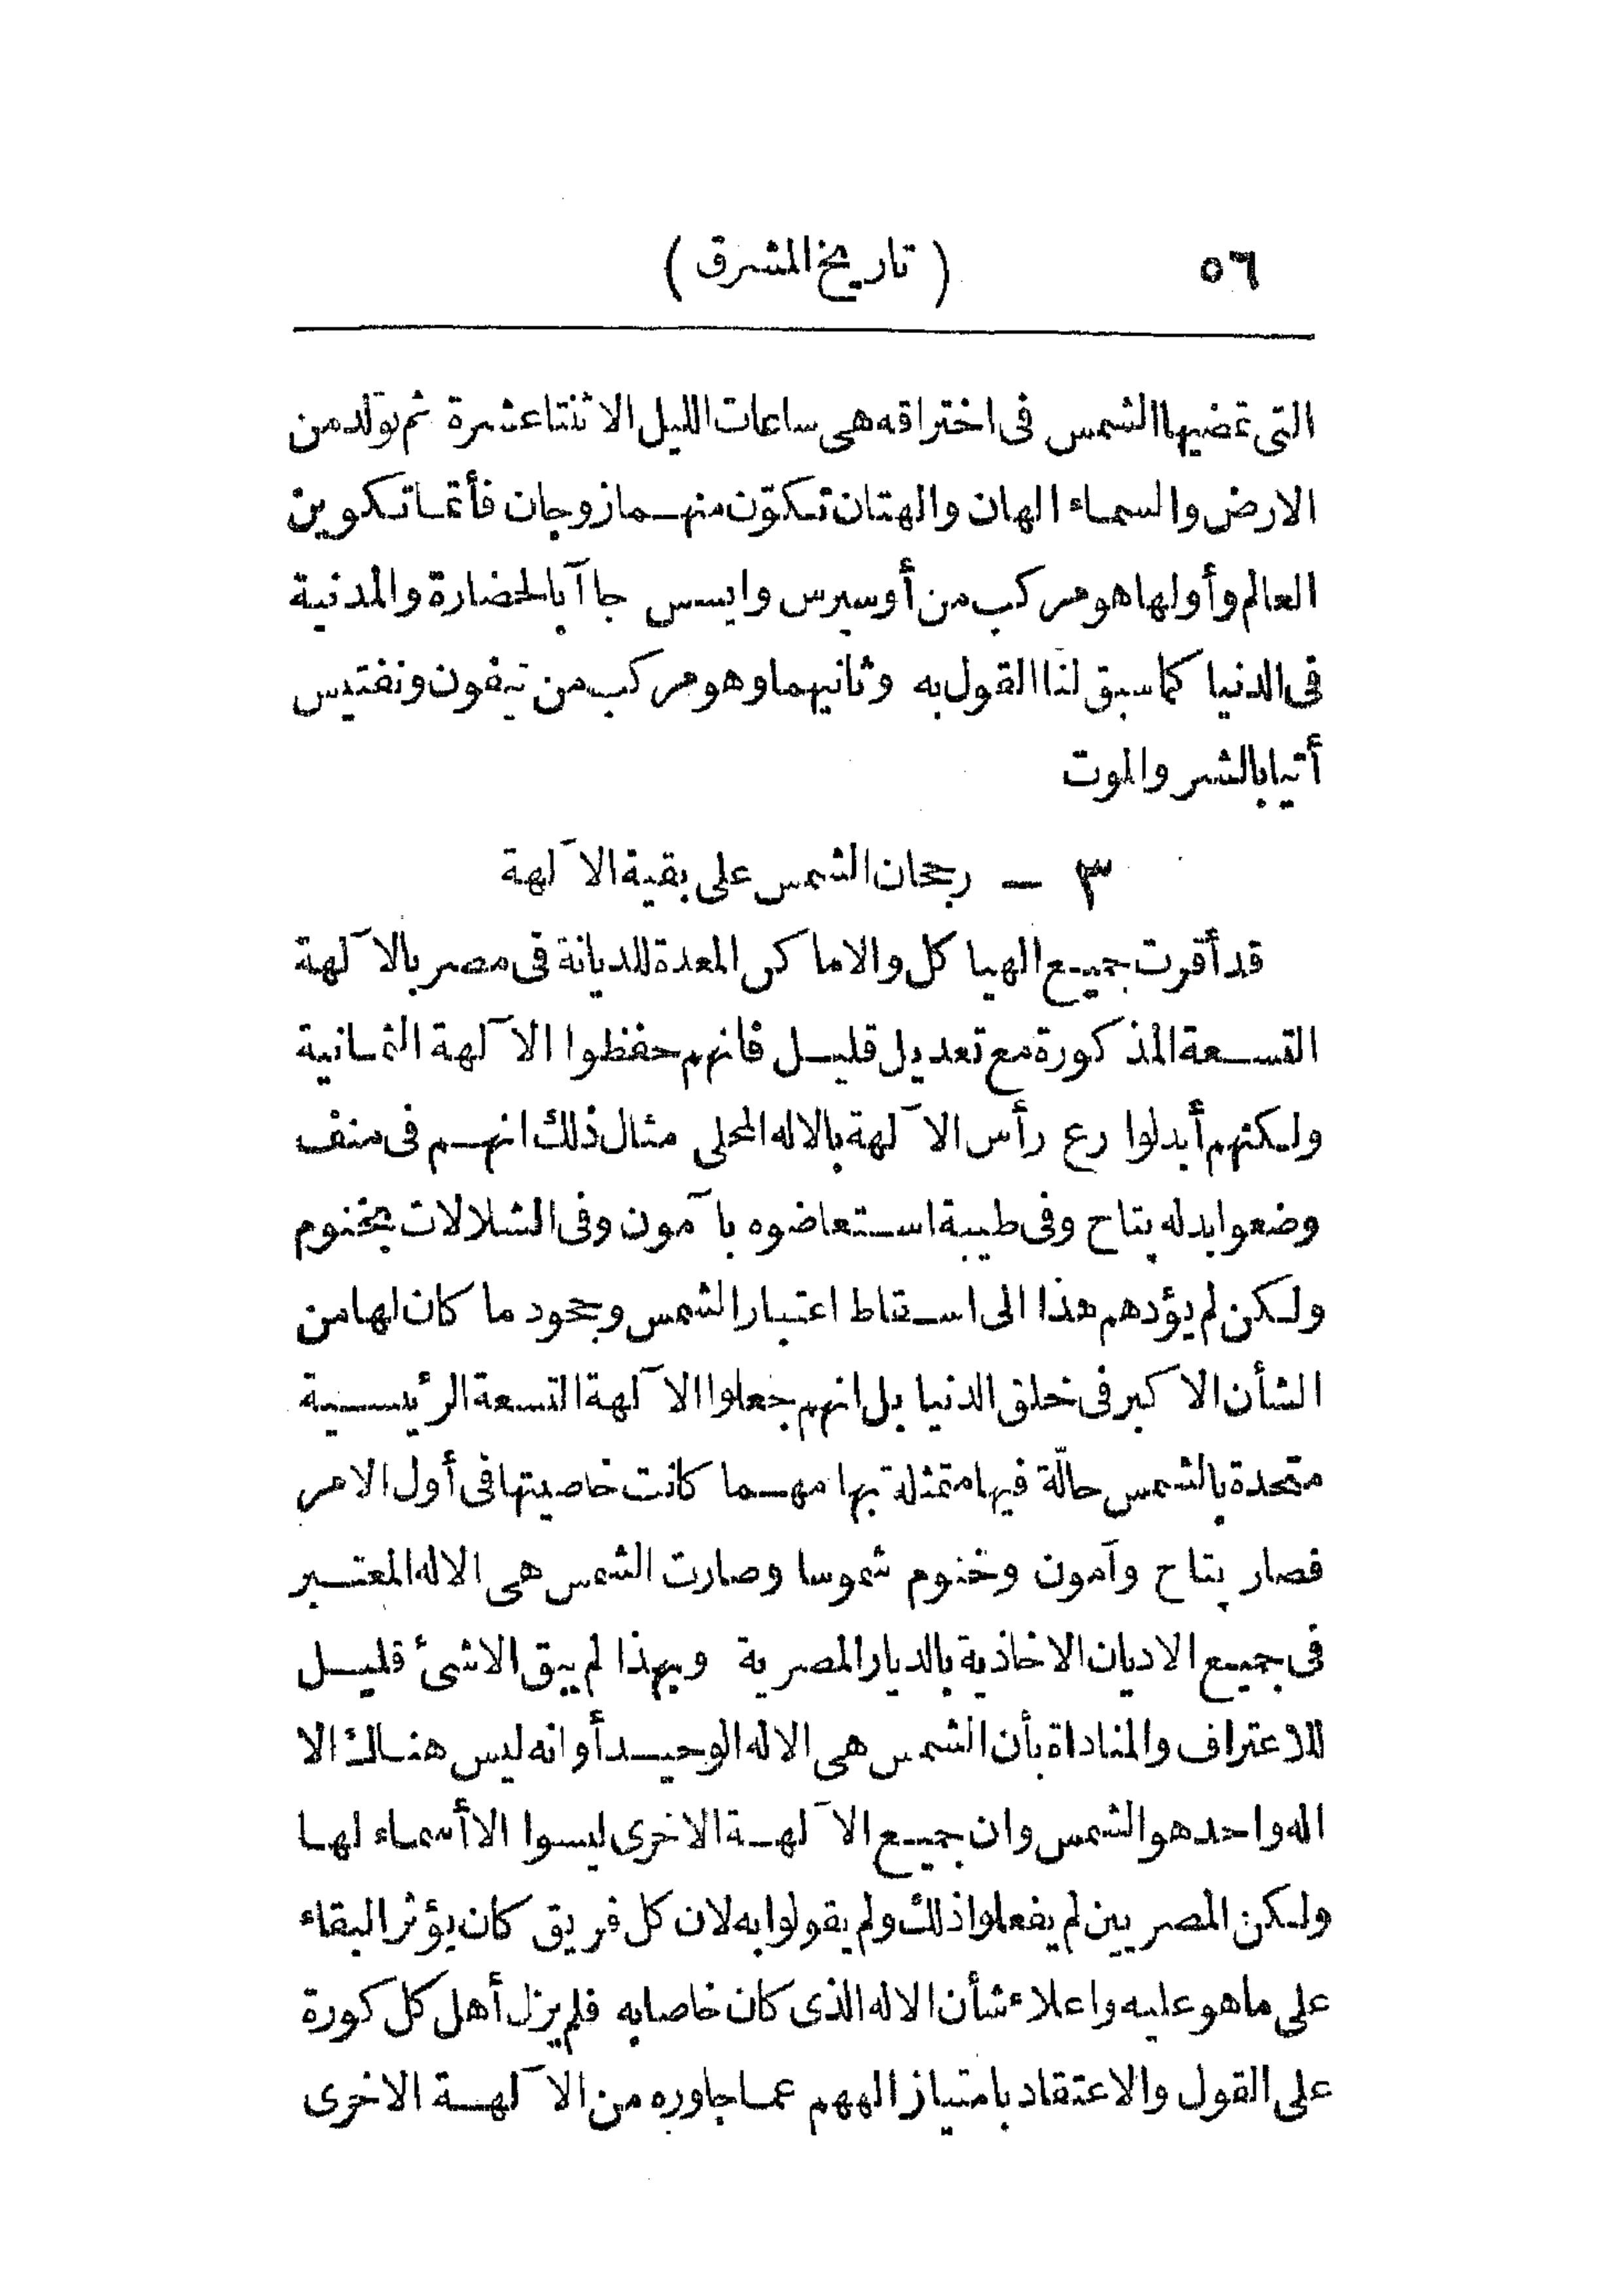 ٥٦ ( تاريخ المشرق )
التى تمضيها الشمس فى اختراقه هى ساعات الليل الاثنتاعشرة ثم تولد من
الارض والسماء الهان والهتان تكوّن منهما زوجان فأتما تكوين
العالم وأولها هو مركب من أوسيرس وايسس جاآ بالحضارة والمدنية
فى الدنيا كما سبق لنا القول به وثانيهما وهو مركب من تيفون ونفتيس
أتيا بالشر والموت
٣ ـ رجحان الشمس على بقية الآلهة
قد أقرت جميع الهياكل والاماكن المعدة للديانة فى مصر بالآلهة
التسعة المذكورة مع تعديل قليل فانهم حفظوا الآلهة الثمانية
ولكنهم أبدلوا رع رأس الآلهة بالاله المحلى مثال ذلك انهم فى منف
وضعوا بدله پتاح وفى طيبة استعاضوه بآمون وفى الشلالات بخنوم
ولكن لم يؤدهم هذا الى اسقاط اعتبار الشمس وجحود ما كان لها من
الشأن الاكبر فى خلق الدنيا بل انهم جعلوا الآلهة التسعة الرئيسية
متحدة بالشمس حالّة فيها متمثلة بها مهما كانت خاصيتها فى أول الامر
فصار پتاح وآمون وخنوم شموسا وصارت الشمس هى الاله المعتبر
فى جميع الاديان الاخاذية بالديار المصرية وبهذا لم يبق الا شئ قليل
للاعتراف والمناداة بأن الشمس هى الاله الوحيد أو انه ليس هناك الا
اله واحد هو الشمس وان جميع الآلهة الاخرى ليسوا الا أسماء لها
ولكن المصريين لم يفعلوا ذلك ولم يقولوا به لان كل فريق كان يؤثر البقاء
على ما هو عليه واعلاء شأن الاله الذى كان خاصا به فلم يزل أهل كل كورة
على القول والاعتقاد بامتياز الههم عما جاوره من الآلهة الاخرى